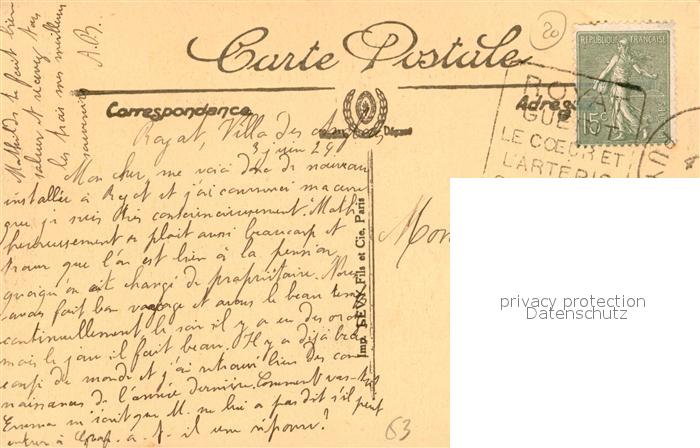 20
Carte Postale
RÉPUBLIQUE FRANÇAISE
15c
ROYAT
GUÉRIT
LE COEUR ET
L'ARTERIO
Correspondance
Adresse
Royat, Villa des
3 juin 24
Mon cher, me voici donc de nouveau
installée à Royat et j'ai commencé ma cure
que je suis très consciencieusement. Math.
heureusement se plait aussi beaucoup et
trouve que l'on est bien à la pension
quoiqu'on ait changé de propriétaire. Nous
avons fait bon voyage et avons le beau temps
continuellement, le soir il y a eu des orages
mais le jour il fait beau. Il y a déjà beau
coup de monde et j'ai retrouvé bien des con
naissances de l'année dernière. Comment vas-tu?
Emma m'écrit que M. ne lui a pas dit s'il peut
entrer à a-t-il une réponse?
Mathilde te fait bien
saluer et recevez tous
les trois mes meilleurs
souvenirs A.B.
Imp. LEVY Fils et Cie, Paris
Mon
63
privacy protection
Datenschutz